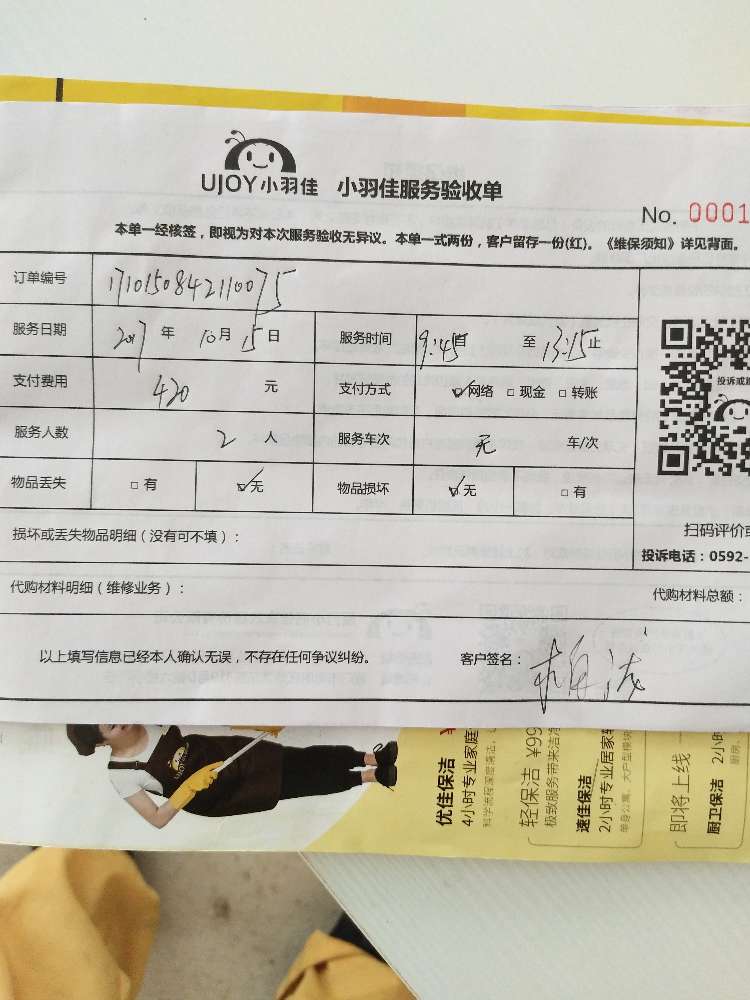 UJOY小羽佳 小羽佳服务验收单
No. 0001
本单一经核签，即视为对本次服务验收无异议。本单一式两份，客户留存一份(红)。《维保须知》详见背面。
订单编号 1710150842110075
服务日期 2017 年 10 月 15 日 服务时间 9:45 自 至 13:15 止
支付费用 420 元 支付方式 ☑网络 □现金 □转账
服务人数 2 人 服务车次 无 车/次
物品丢失 □有 ☑无 物品损坏 ☑无 □有
投诉或
损坏或丢失物品明细（没有可不填）：
扫码评价
投诉电话：0592-
代购材料明细（维修业务）： 代购材料总额：
以上填写信息已经本人确认无误，不存在任何争议纠纷。 客户签名：
UJOY
优佳保洁
4小时专业家庭
科学流程深度清洁，
轻保洁 ¥99
极致服务带来洁净
速佳保洁
2小时专业居家
单身公寓、大户型模块
即将上线
厨卫保洁 2小时
厨房、